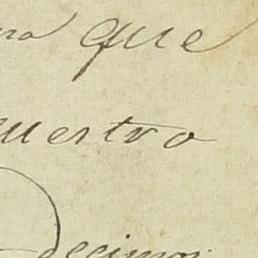 que
uestro
Decimos